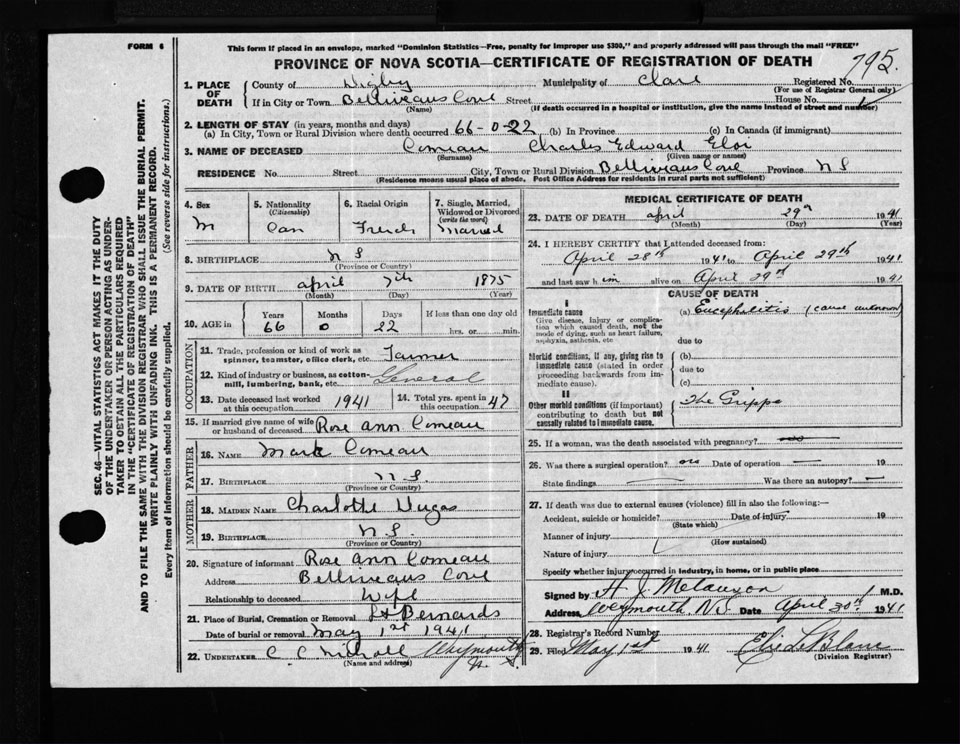 FORM 6
This form if placed in an envelope, marked "Dominion Statistics—Free, penalty for improper use $300," and properly addressed will pass through the mail "FREE"
PROVINCE OF NOVA SCOTIA—CERTIFICATE OF REGISTRATION OF DEATH
795.
SEC. 46—VITAL STATISTICS ACT MAKES IT THE DUTY
OF THE UNDERTAKER OR PERSON ACTING AS UNDER-
TAKER TO OBTAIN ALL THE PARTICULARS REQUIRED
IN THE "CERTIFICATE OF REGISTRATION OF DEATH"
AND TO FILE THE SAME WITH THE DIVISION REGISTRAR WHO SHALL ISSUE THE BURIAL PERMIT.
WRITE PLAINLY WITH UNFADING INK. THIS IS A PERMANENT RECORD.
Every item of information should be carefully supplied. (See reverse side for instructions.)
1. PLACE OF DEATH County of Digby Municipality of Clare Registered No.
(For use of Registrar General only)
If in City or Town Belliveaus Cove Street House No.
(Name) (If death occurred in a hospital or institution, give the name instead of street and number)
2. LENGTH OF STAY (in years, months and days)
(a) In City, Town or Rural Division where death occurred 66-0-22 (b) In Province (c) In Canada (if immigrant)
3. NAME OF DECEASED Comeau Charles Edward Eloi
(Surname) (Given name or names)
RESIDENCE No. Street City, Town or Rural Division Belliveaus Cove Province N S
(Residence means usual place of abode. Post Office Address for residents in rural parts not sufficient)
4. Sex M
5. Nationality (Citizenship) Can
6. Racial Origin French
7. Single, Married, Widowed or Divorced (write the word) Married
8. BIRTHPLACE N S
(Province or Country)
9. DATE OF BIRTH April 7th 1875
(Month) (Day) (Year)
10. AGE in Years 66 Months 0 Days 22 If less than one day old hrs. or min.
OCCUPATION
11. Trade, profession or kind of work as spinner, teamster, office clerk, etc. Farmer
12. Kind of industry or business, as cotton-mill, lumbering, bank, etc. General
13. Date deceased last worked at this occupation 1941
14. Total yrs. spent in this occupation 47
15. If married give name of wife or husband of deceased Rose Ann Comeau
FATHER
16. NAME Mark Comeau
17. BIRTHPLACE N.S.
(Province or Country)
MOTHER
18. MAIDEN NAME Charlotte Dugas
19. BIRTHPLACE N.S.
(Province or Country)
20. Signature of informant Rose Ann Comeau
Address Belliveaus Cove
Relationship to deceased Wife
21. Place of Burial, Cremation or Removal St Bernards
Date of burial or removal May 1st 1941
22. UNDERTAKER C C Weymouth N. S
(Name and address)
MEDICAL CERTIFICATE OF DEATH
23. DATE OF DEATH April 29th 1941
(Month) (Day)
24. I HEREBY CERTIFY that I attended deceased from:
April 28th 1941 to April 29th 1941
and last saw him alive on April 29th 1941
CAUSE OF DEATH
I
Immediate cause
Give disease, injury or complication which caused death, not the mode of dying, such as heart failure, asphyxia, asthenia, etc
(a) Encephalitis (cause unknown)
due to
Morbid conditions, if any, giving rise to immediate cause (stated in order proceeding backwards from immediate cause).
(b)
due to
(c)
II
Other morbid conditions (if important) contributing to death but not causally related to immediate cause.
The Grippe
25. If a woman, was the death associated with pregnancy?
26. Was there a surgical operation? no Date of operation — 19
State findings — Was there an autopsy? —
27. If death was due to external causes (violence) fill in also the following:—
Accident, suicide or homicide? Date of injury 19
(State which)
Manner of injury
(How sustained)
Nature of injury
Specify whether injury occurred in industry, in home, or in public place
Signed by H J Melanson M.D.
Address Weymouth N.S. Date April 30th 1941
28. Registrar's Record Number
29. Filed May 1st 1941
(Division Registrar)